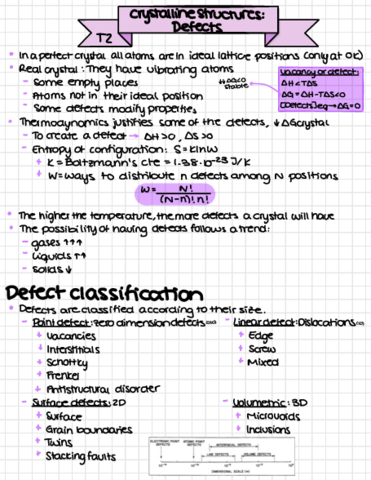 Crystalline Structures:
T2 Defects
• In a perfect crystal all atoms are in ideal lattice positions (only at 0K)
• Real crystal: They have vibrating atoms
– Some empty places
– Atoms not in their ideal position
– Some defects modify properties
stable
Vacancy or defect:
ΔH<TΔS
ΔG=ΔH-TΔS<0
[Defects]eq→ΔG=0
• Thermodynamics justifies some of the defects, ↓ΔGcrystal
– To create a defect → ΔH>0, ΔS>0
– Entropy of configuration: S=KlnW
+ K=Boltzmann's cte = 1.38·10⁻²³ J/K
+ W=ways to distribute n defects among N positions
W= N! / (N-n)! n!
• The higher the temperature, the more defects a crystal will have
• The possibility of having defects follows a trend:
– gases ↑↑↑
– Liquids ↑↑
– Solids ↓
Defect classification
• Defects are classified according to their size.
– Point defect: zero dimension defects
+ Vacancies
+ Interstitials
+ Schottky
+ Frenkel
+ Antistructural disorder
– Linear defect: Dislocations
+ Edge
+ Screw
+ Mixed
– Surface defects: 2D
+ Surface
+ Grain boundaries
+ Twins
+ Stacking faults
– Volumetric: 3D
+ Microvoids
+ Inclusions
ELECTRONIC POINT DEFECTS
ATOMIC POINT DEFECTS
INTERFACIAL DEFECTS
LINE DEFECTS
VOLUME DEFECTS
DIMENSIONAL SCALE (m)